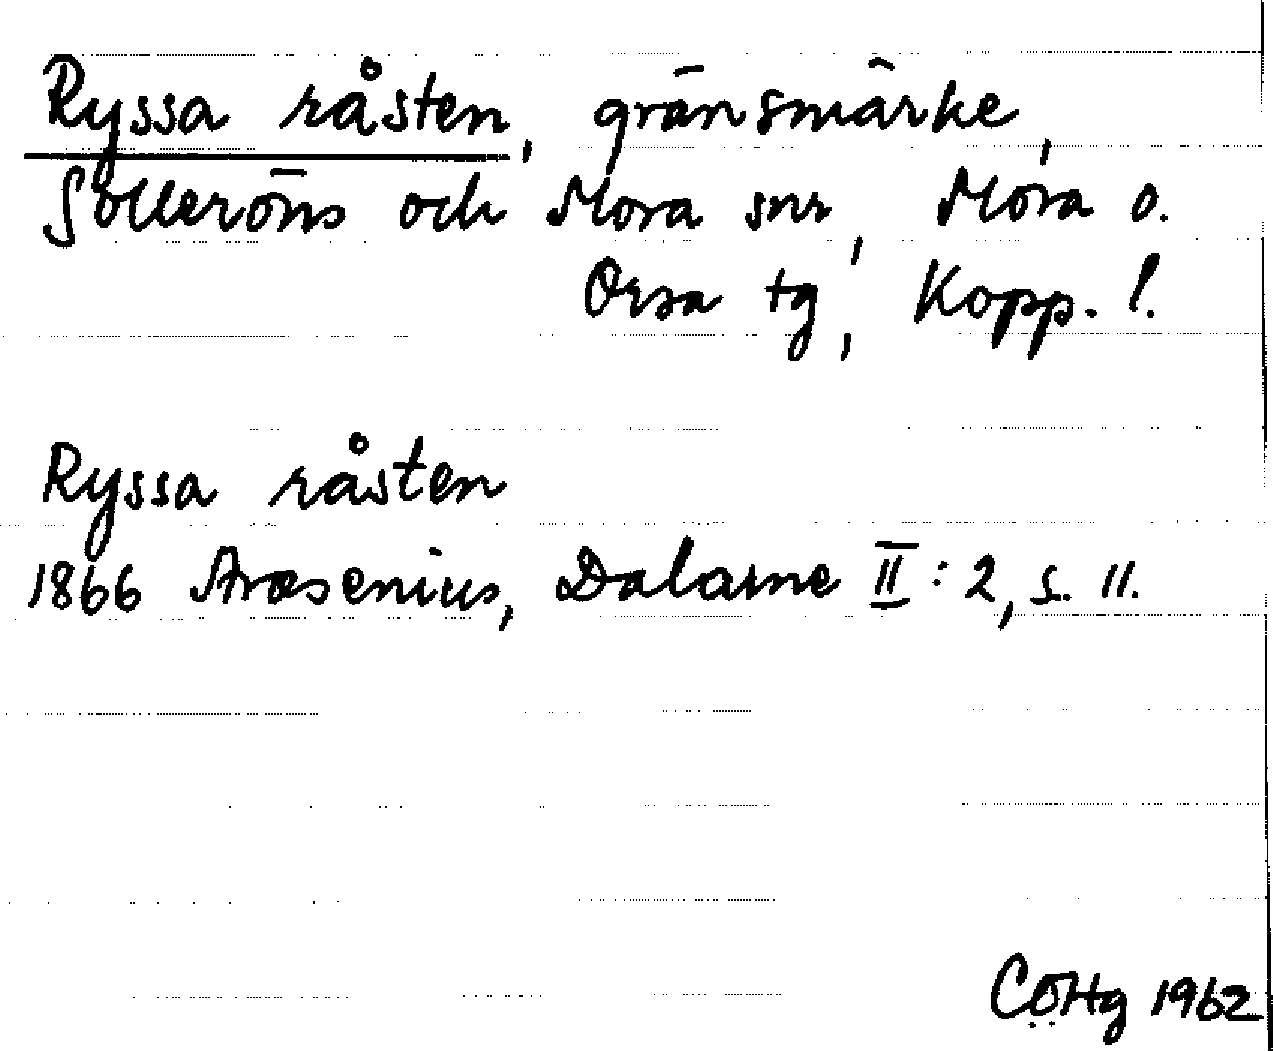 Ryssa råsten, gränsmärke,
Solleröns och Mora snr, Mora o.
Orsa tg, Kopp. l.
Ryssa råsten
1866 Arosenius, Dalarne II:2, s. 11.
CÖHg 1962